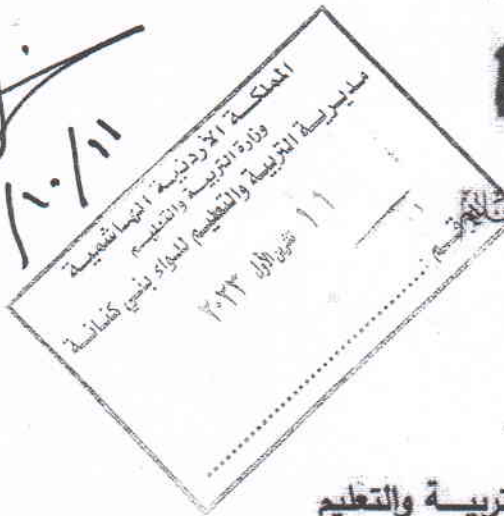 ١٠/١١/
المملكة الأردنية الهاشمية
وزارة التربية والتعليم
مديرية التربية والتعليم للواء بني كنانة
١١ تشرين الأول ٢٠٢٣
الرقم
تربية والتعليم